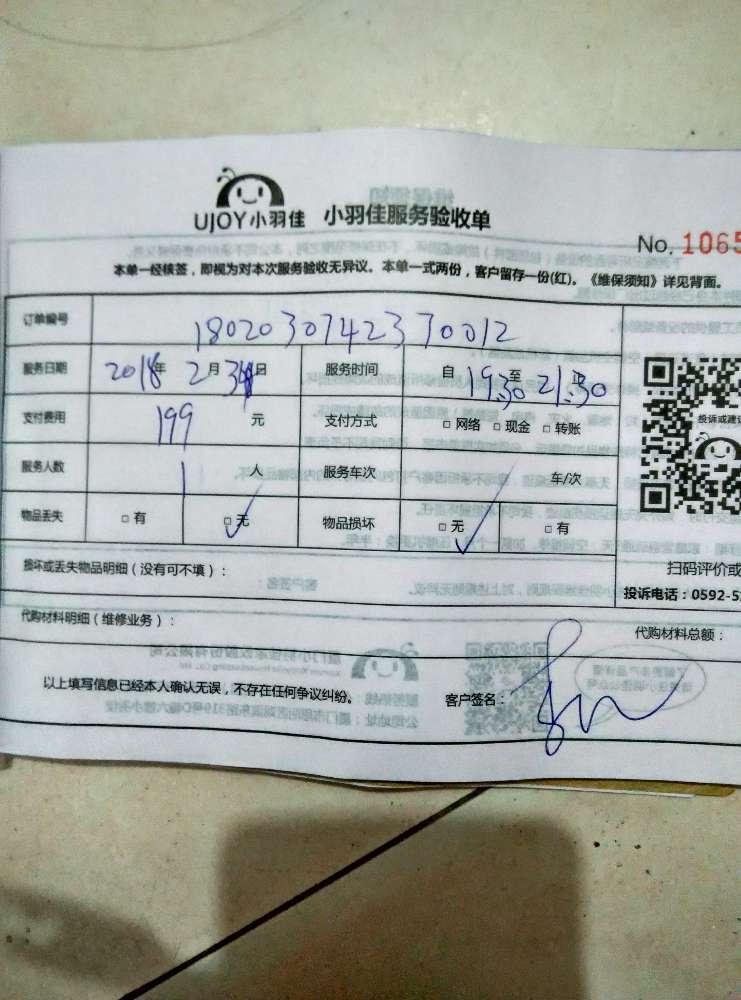 UJOY小羽佳 小羽佳服务验收单
No. 1065
本单一经核签，即视为对本次服务验收无异议。本单一式两份，客户留存一份(红)。《维保须知》详见背面。
订单编号 18020307423370012
服务日期 2018年 2月 日 服务时间 自 19:30 至 21:30
支付费用 199 元 支付方式 □ 网络 □ 现金 □ 转账
服务人数 1 人 服务车次 车/次
物品丢失 □ 有 □ 无 物品损坏 □ 无 □ 有
投诉或建议
扫码评价或
损坏或丢失物品明细（没有可不填）：
投诉电话：0592-5
代购材料明细（维修业务）：
代购材料总额：
以上填写信息已经本人确认无误，不存在任何争议纠纷。 客户签名：